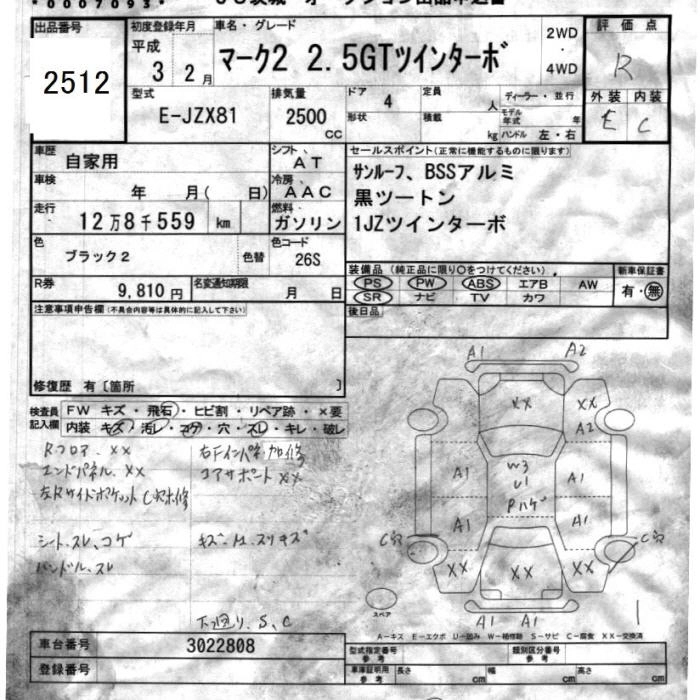 *0007093*
出品番号
2512
初度登録年月
平成
3 2月
車名・グレード
マーク2 2.5GTツインターボ
2WD
・
4WD
評価点
R
外装 内装
E C
型式
E-JZX81
排気量
2500
cc
ドア
4
形状
定員
人
積載
kg
ディーラー・並行
モデル年式
年
ハンドル 左・右
車歴
自家用
シフト
AT
車検
年 月( 日)
冷房
AAC
走行
12万8千559 km
燃料
ガソリン
色
ブラック2
色替
色コード
26S
R券
9,810円
名変通知期限
月 日
セールスポイント(正常に機能するものに限ります)
サンルーフ、BSSアルミ
黒ツートン
1JZツインターボ
装備品(純正品に限り○をつけてください)
PS PW ABS エアB AW
SR ナビ TV カワ
新車保証書
有・無
後日品
注意事項申告欄(不具合内容等は具体的に記入して下さい)
修復歴 有〔箇所 〕
検査員記入欄
FW キズ・飛石・ヒビ割・リペア跡・×要
内装 キズ・汚レ・コゲ・穴・スレ・キレ・破レ
Rフロア、××
エンドパネル、××
シート、スレ、コゲ
ハンドル、スレ
コアサポート ××
下回り、S、C
A1 A2
×× ××
A2
A1 W3 A1
U1
Pハゲ
A1 A1
C穴 C穴
×× ×× ××
A1 A1
スペア
1
A-キズ E-エクボ U-凹み W-補修跡 S-サビ C-腐食 XX-交換済
車台番号
3022808
登録番号
型式指定番号
参考
類別区分番号
参考
車庫証明用
参考
長さ cm 幅 cm 高さ cm